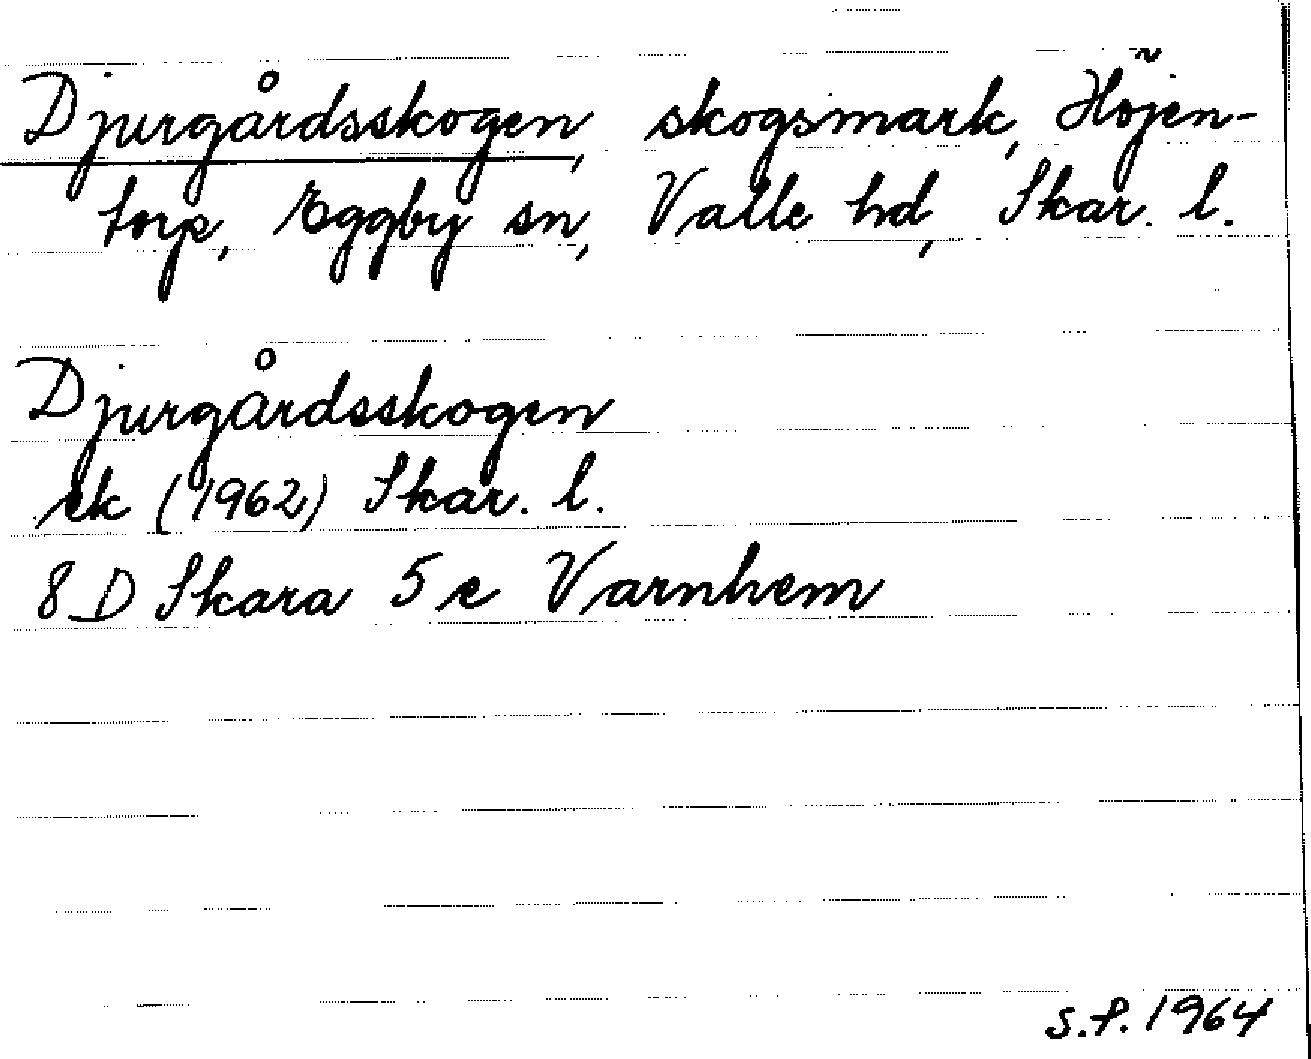 Djurgårdsskogen, skogsmark, Höjen-
torp, Eggby sn, Valle hd, Skar. l.
Djurgårdsskogen
ek (1962) Skar. l.
8 D Skara 5 e Varnhem
S.P. 1964